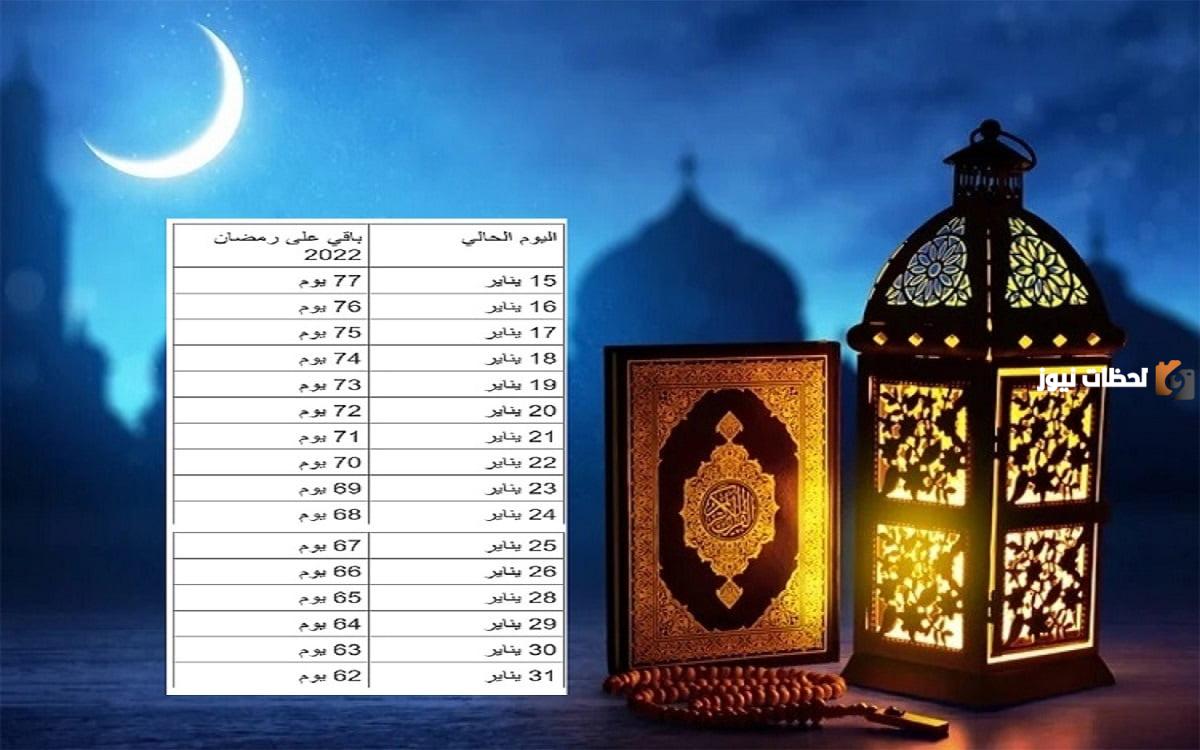 اليوم الحالي	باقي على رمضان
2022
15 يناير	77 يوم
16 يناير	76 يوم
17 يناير	75 يوم
18 يناير	74 يوم
19 يناير	73 يوم
20 يناير	72 يوم
21 يناير	71 يوم
22 يناير	70 يوم
23 يناير	69 يوم
24 يناير	68 يوم
25 يناير	67 يوم
26 يناير	66 يوم
28 يناير	65 يوم
29 يناير	64 يوم
30 يناير	63 يوم
31 يناير	62 يوم
لحظات نيوز